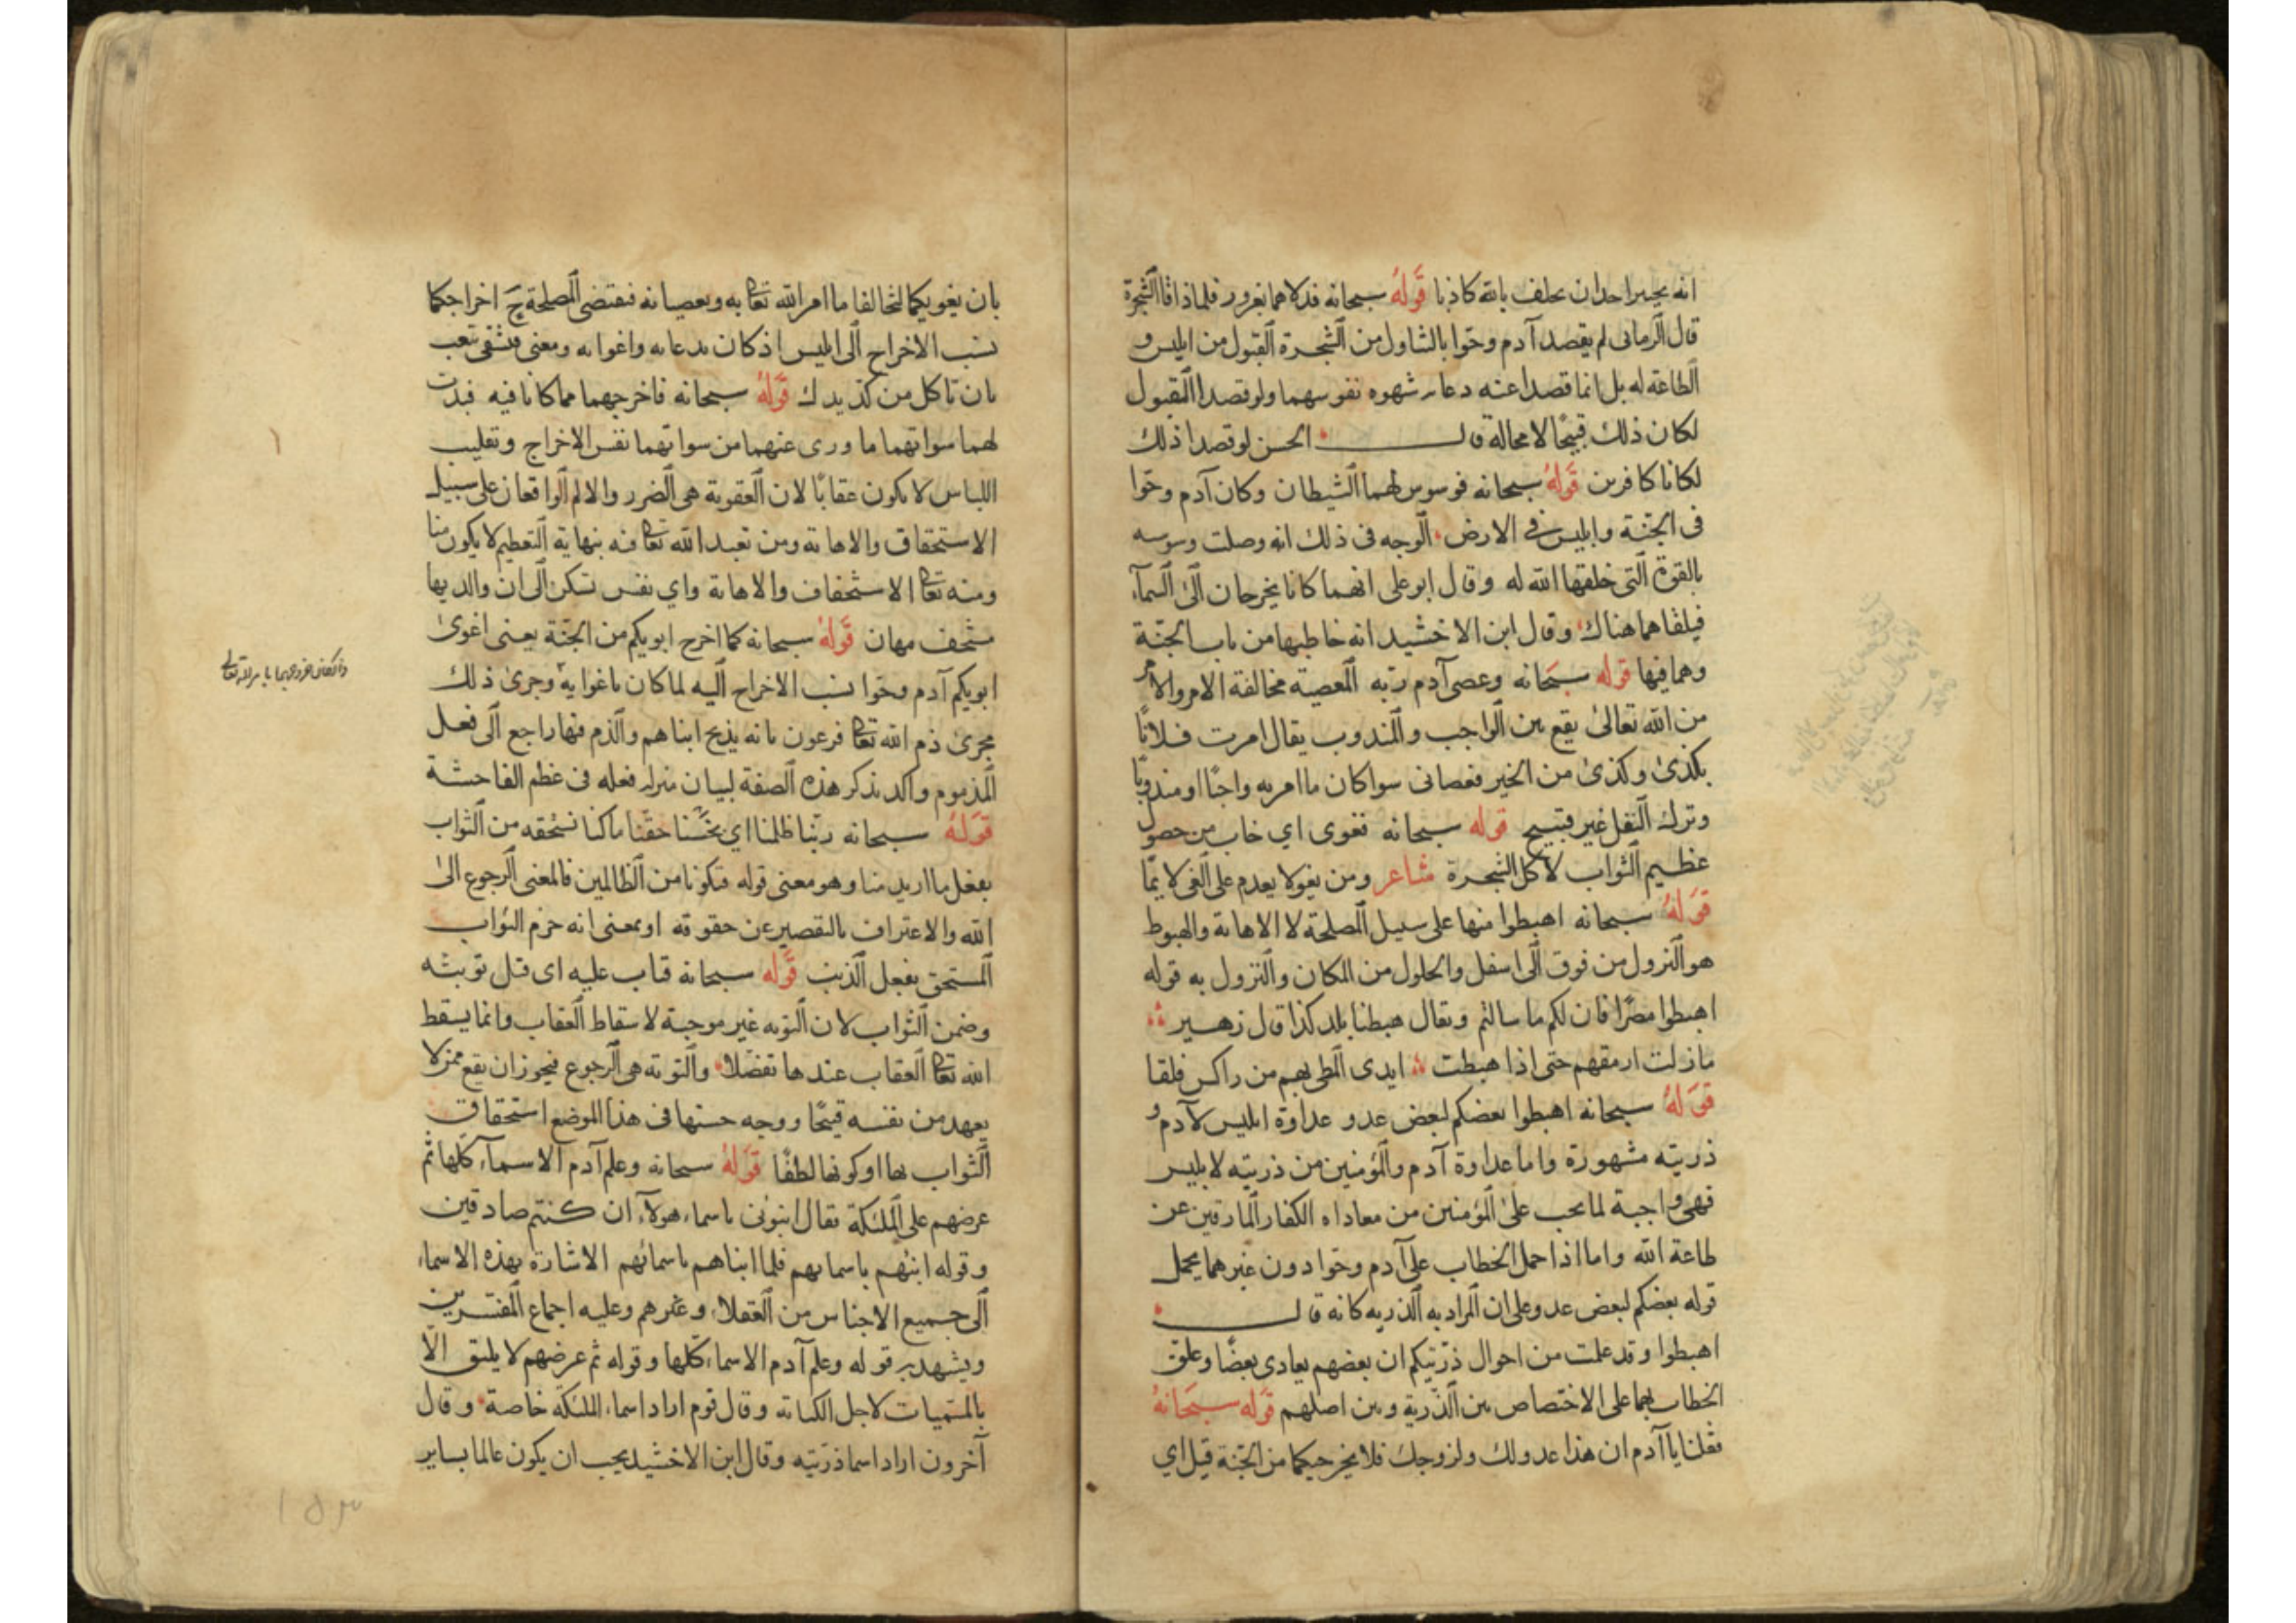 انه يجبر احدا ان يحلف بالله كاذبا قوله سبحانه فدلاهما بغرور فلما ذاقا الشجرة
قال الرماني لم يقصد آدم وحوا بالتناول من الشجرة القبول من ابليس و
الطاعة له بل انما قصدا عنه دعا شهوه نفوسهما ولو قصدا القبول
لكان ذلك قبيحًا لا محالة قال الحسن لو قصدا ذلك
لكانا كافرين قوله سبحانه فوسوس لهما الشيطان وكان آدم وحوا
فى الجنة وابليس في الارض الوجه فى ذلك انه وصلت وسوسه
بالقوة التى خلقها الله له وقال ابو على انهما كانا يخرجان الى السمآء
فيلقاهما هناك وقال ابن الاخشيد انه خاطبها من باب الجنة
وهما فيها قوله سبحانه وعصى آدم ربه المعصية مخالفة الامر والامر
من الله تعالى يقع بين الواجب والمندوب يقال امرت فلانًا
بكذى وكذى من الخير فعصانى سوا كان ما امر به واجبًا او مندوبًا
وترك النفل غير قبيح قوله سبحانه فغوى اي خاب من حصول
عظيم الثواب لاكل الشجرة شاعر ومن يغو لا يعدم على الغى لايمًا
قوله سبحانه اهبطوا منها على سبيل المصلحة لا الاهانة والهبوط
هو النزول من فوق الى اسفل والحلول من المكان والنزول به قوله
اهبطوا مصرًا فان لكم ما سالتم ويقال هبطنا بلد كذا قال زهير
ما زلت ارمقهم حتى اذا هبطت ايدى المطى بهم من راكس فلقا
قوله سبحانه اهبطوا بعضكم لبعض عدو عداوة ابليس لآدم و
ذريته مشهورة واما عداوة آدم والمؤمنين من ذريته لابليس
فهى واجبة لما يجب على المؤمنين من معاداه الكفار المارقين عن
طاعة الله واما اذا حمل الخطاب على آدم وحوا دون غيرهما يحمل
قوله بعضكم لبعض عدو على ان المراد به الذريه كانه قال
اهبطوا وقد علمت من احوال ذريتكم ان بعضهم يعادى بعضًا وعلق
الخطاب بهما على الاختصاص بين الذرية وبين اصلهم قوله سبحانه
فقلنا يا آدم ان هذا عدو لك ولزوجك فلا يخرجنكما من الجنة قيل اي
بان يغويكما لتخالفا ما امر الله تعا به وبعصيانه فيقتضى المصلحة ح اخراجكما
نسب الاخراج الى ابليس اذ كان بدعايه واغوائه ومعنى فتشقى تتعب
بان تاكل من كد يدك قوله سبحانه فاخرجهما مما كانا فيه فبدت
لهما سواتهما ما ورى عنهما من سواتهما نفس الاخراج وتقليب
اللباس لا يكون عقابًا لان العقوبة هى الضرر والالم الواقعان على سبيل
الاستحقاق والاهانة ومن تعبد الله تعا فيه بنهاية التعظيم لا يكون منا
ومنه تعا الاستخفاف والاهانة واي نفس تسكن الى ان والديها
مستخف مهان قوله سبحانه كما اخرج ابويكم من الجنة يعنى اغوى
ابويكم آدم وحوا نسب الاخراج اليه لما كان باغوايه وجرى ذلك
مجرى ذم الله تعا فرعون بانه يذبح ابناهم والذم فيها راجع الى فعل
المذموم واكد بذكر هذه الصفة لبيان منزلة فعله فى عظم الفاحشة
قوله سبحانه ربنا ظلمنا اي بخسنا حقنا ما كنا نستحقه من الثواب
بفعل ما اريد منا وهو معنى قوله فتكونا من الظالمين فالمعنى الرجوع الى
الله والاعتراف بالتقصير عن حقوقه او بمعنى انه حرم الثواب
المستحق بفعل الذنب قوله سبحانه فتاب عليه اى قبل توبته
وضمن الثواب لان التوبه غير موجبة لاسقاط العقاب وانما يسقط
الله تعا العقاب عندها تفضلا والتوبة هى الرجوع فيجوز ان يقع ممن لا
يعهد من نفسه قبيحًا ووجه حسنها فى هذا الموضع استحقاق
الثواب بها او كونها لطفًا قوله سبحانه وعلم آدم الاسمآء كلها ثم
عرضهم على الملئكة فقال انبئونى باسماء هولآء ان كنتم صادقين
وقوله انبئهم باسمايهم فلما انباهم باسمائهم الاشارة بهذه الاسماء
الى جميع الاجناس من العقلاء وغيرهم وعليه اجماع المفسرين
ويشهد به قوله وعلم آدم الاسماء كلها وقوله ثم عرضهم لا يليق الا
بالمسميات لاجل الكناية وقال قوم اراد اسماء الملئكة خاصة وقال
آخرون اراد اسما ذريته وقال ابن الاخشيد يجب ان يكون عالما بساير
١٥٣